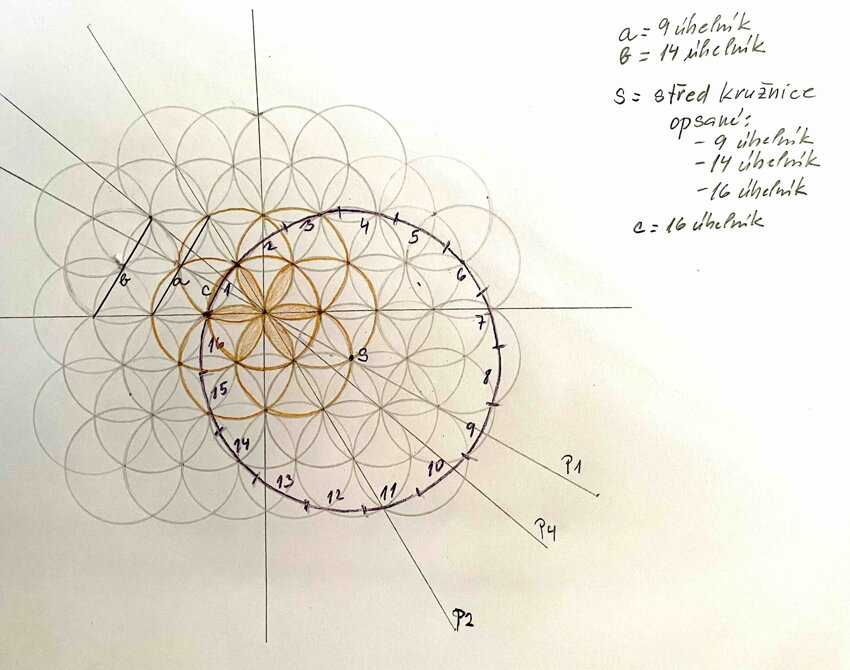 a = 9 úhelník
b = 14 úhelník
S = střed kružnice
opsané:
- 9 úhelník
- 14 úhelník
- 16 úhelník
c = 16 úhelník
b
a
c
1
2
3
4
5
6
7
8
9
10
11
12
13
14
15
16
S
P1
P4
P2